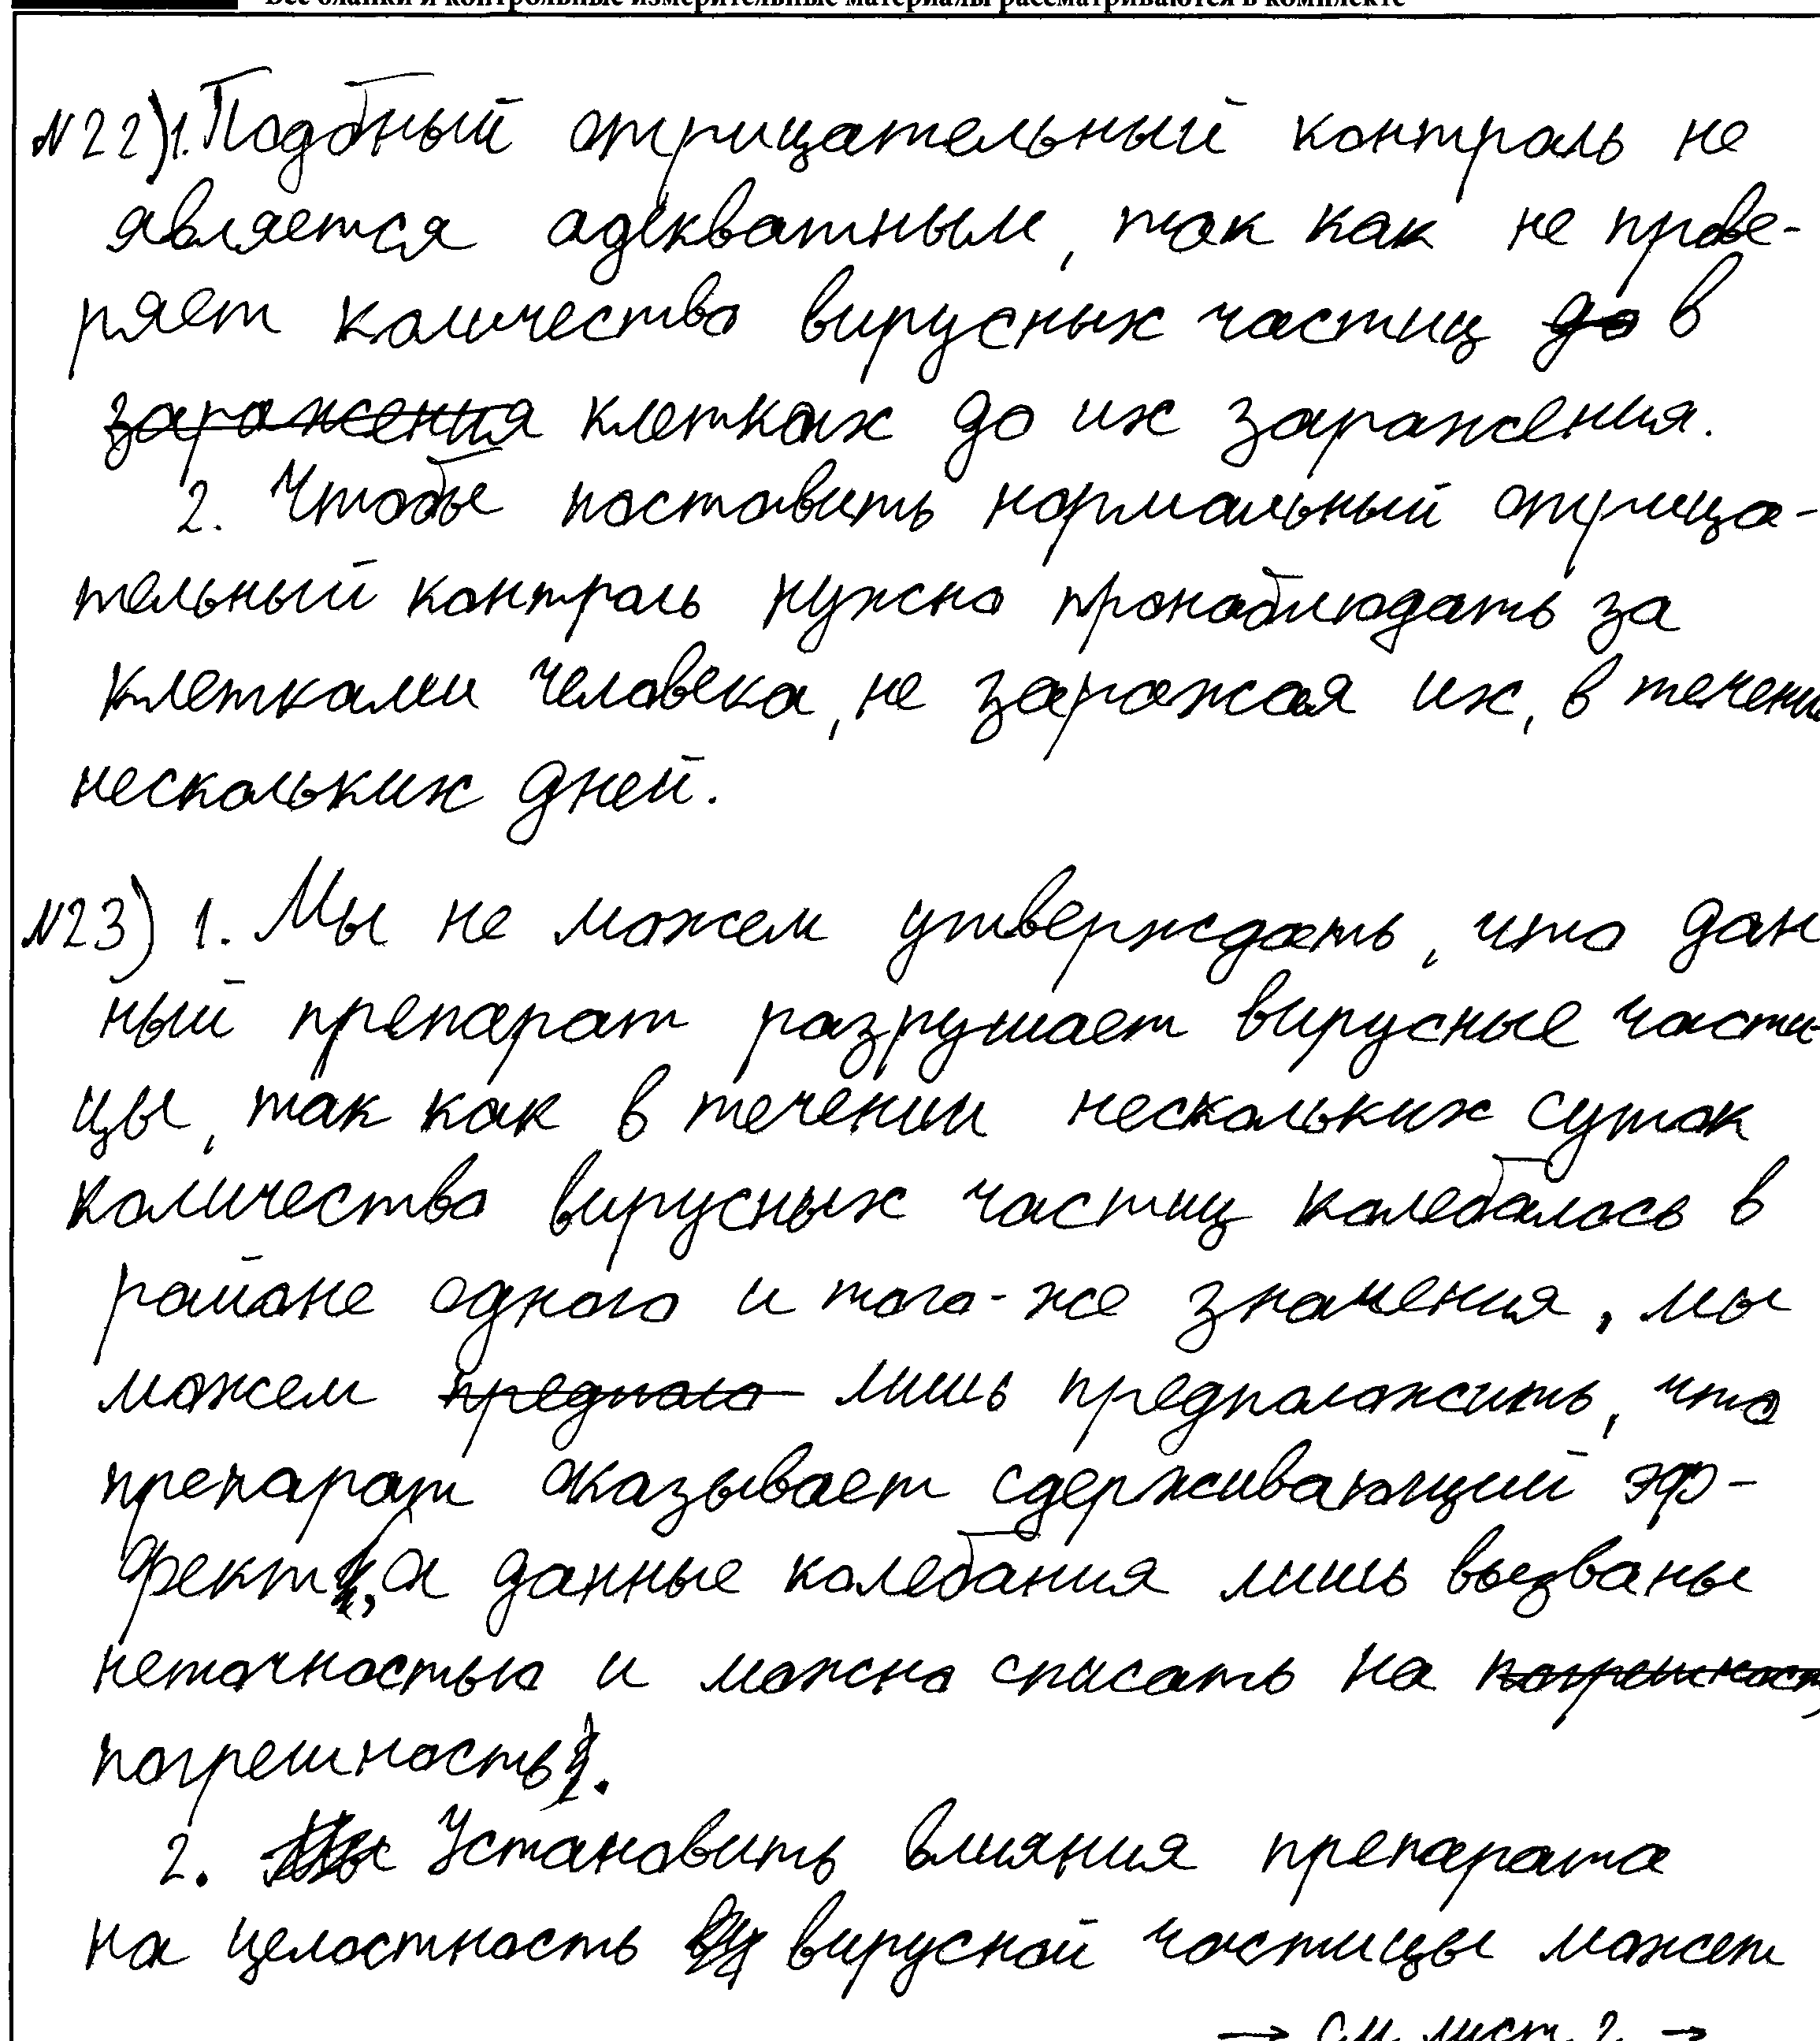 Все бланки и контрольные измерительные материалы рассматриваются в комплекте
№22) 1. Подобный отрицательный контроль не
является адекватным, так как не прове-
ряет количество вирусных частиц до в
заражения клетках до их заражения.
2. Чтобы поставить нормальный отрица-
тельный контроль нужно пронаблюдать за
клетками человека, не заражая их, в течени
нескольких дней.
№23) 1. Мы не можем утверждать, что дан
ный препарат разрушает вирусные части-
цы, так как в течении нескольких суток
количество вирусных частиц колебалось в
районе одного и того-же значения, мы
можем предполо лишь предположить, что
препарат оказывает сдерживающий эф-
фект, а данные колебания лишь вызваны
неточностью и можно списать на погрешност
погрешность.
2. Мы Установить влияния препарата
на целостность вирусной частицы может
→ см лист 2 →